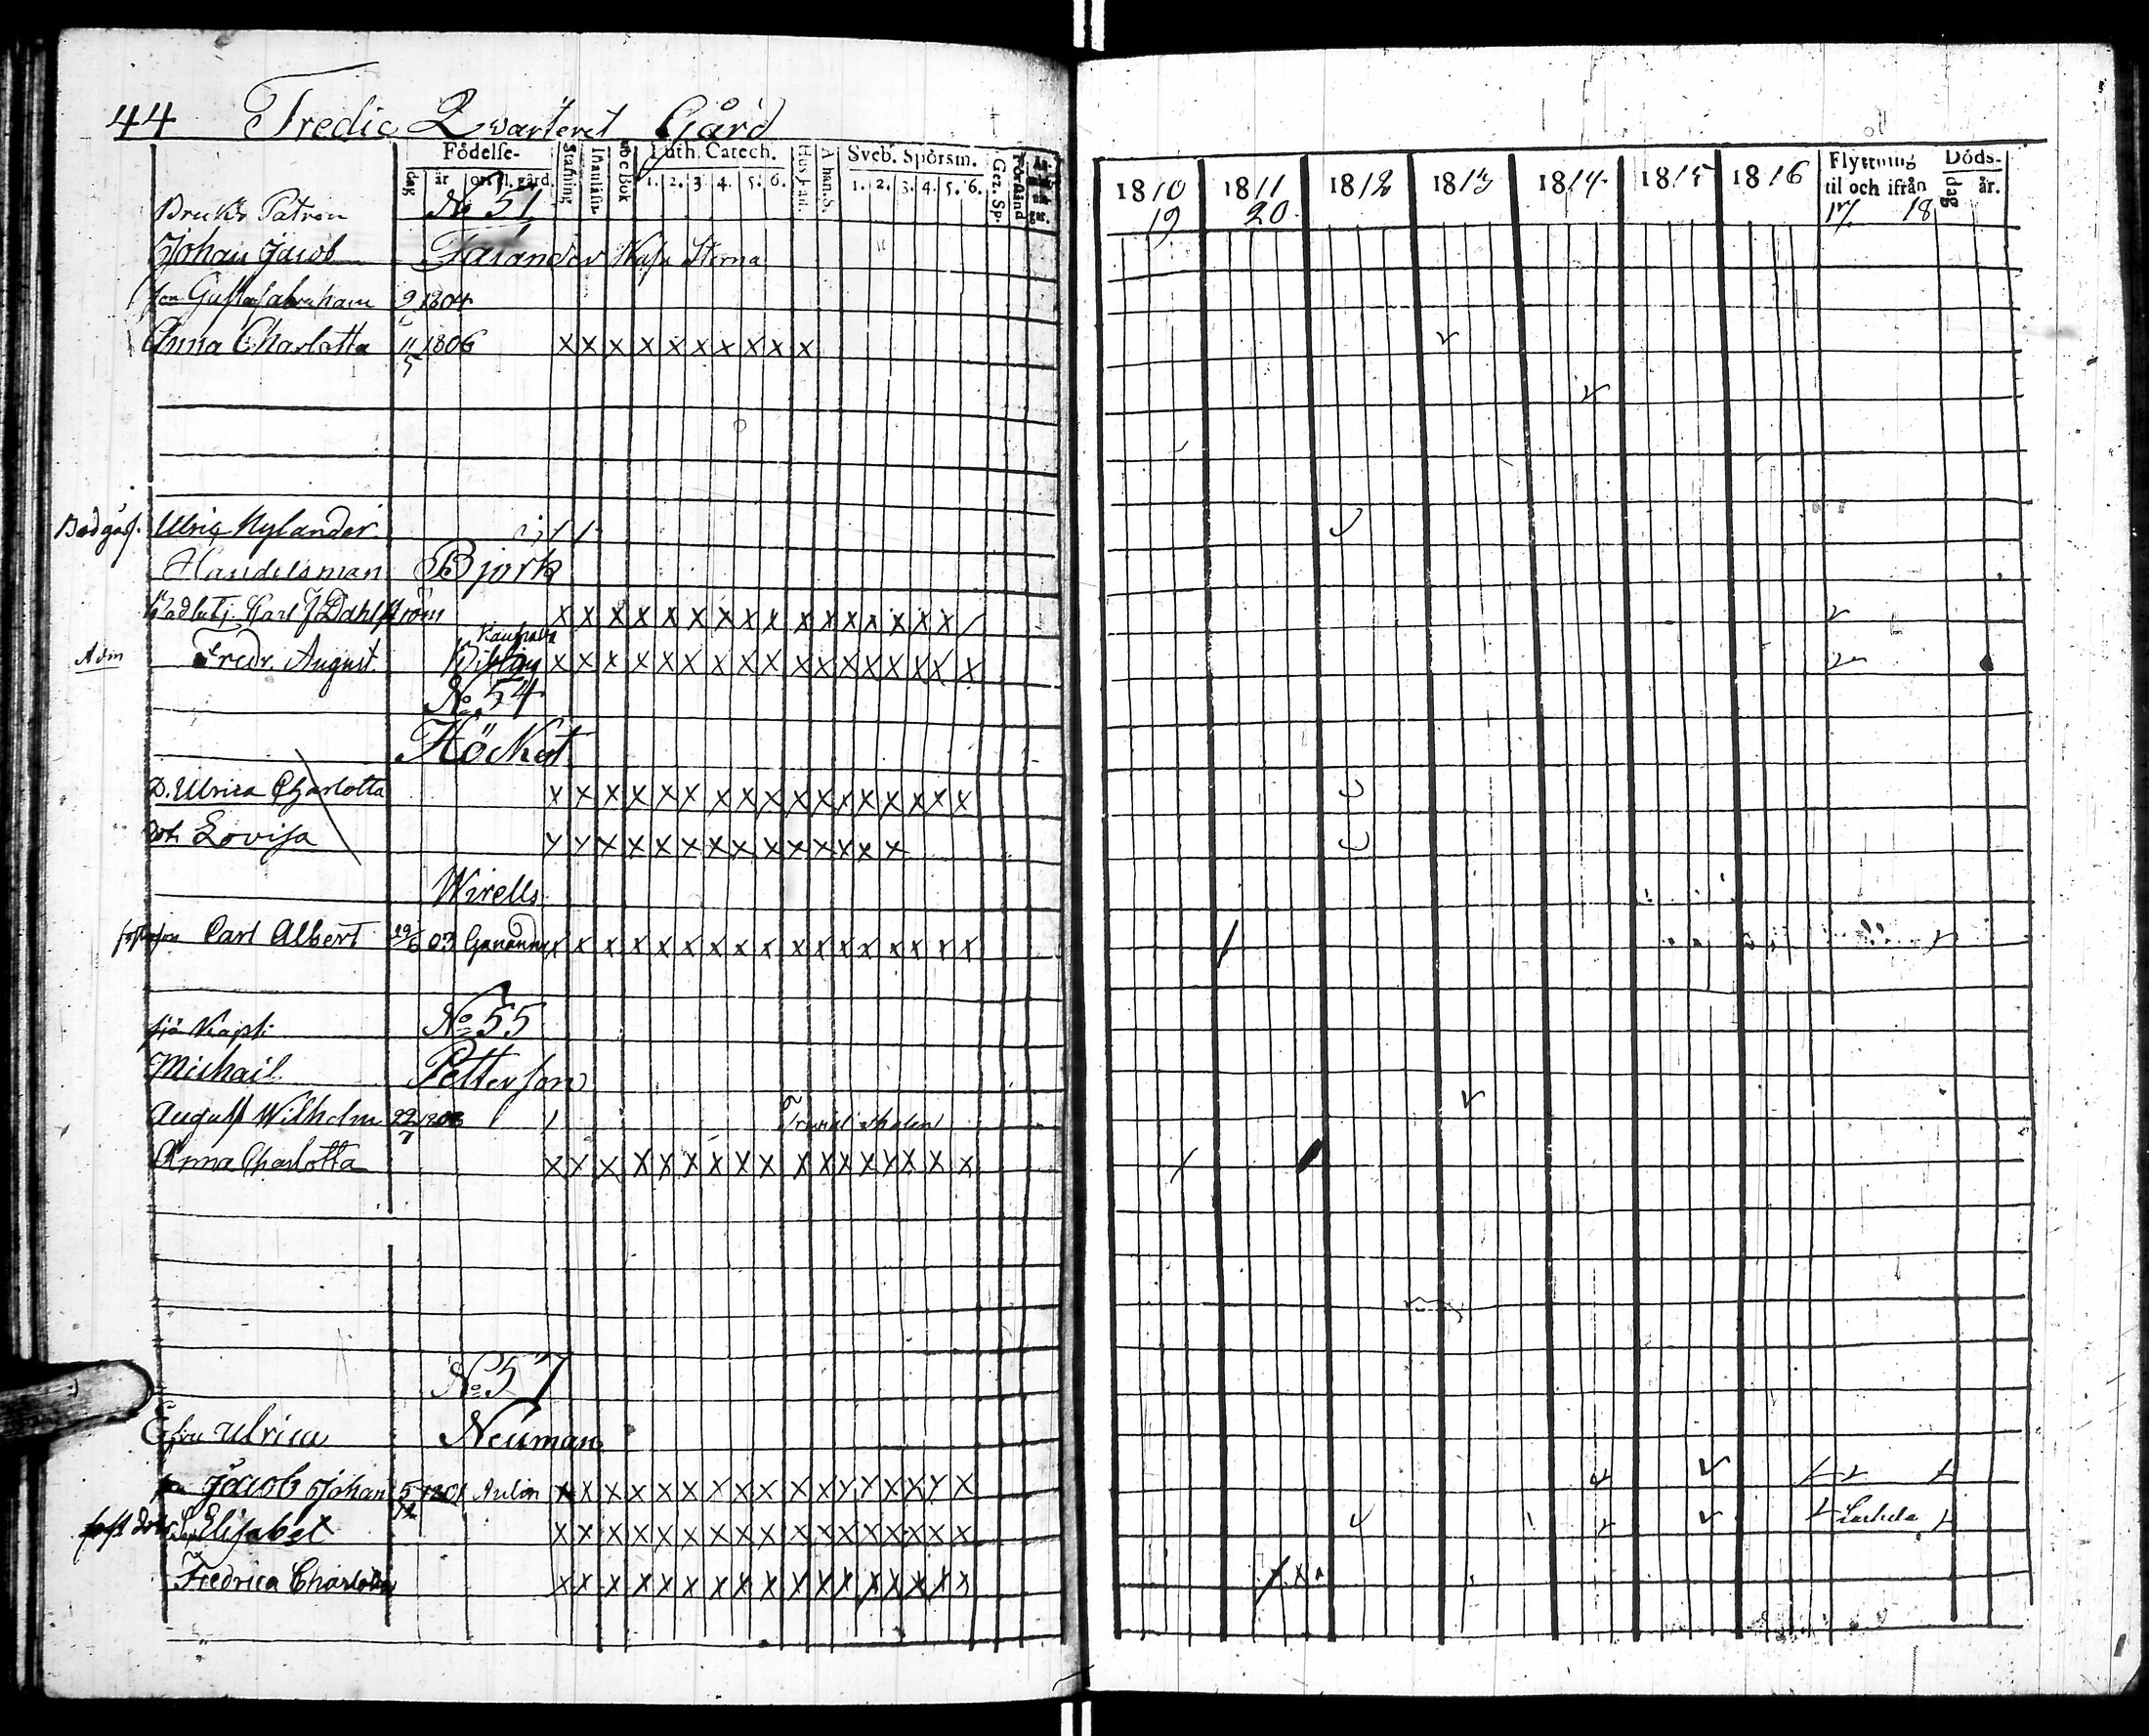 44 Tredie Qwarteret Gård
Födelse- Stafning Inanläsn. Luth. Catech. Sveb. Spörsm. Gez. Sp. Förstånd
dag år 1. 2. 3 4. 5. 6. 1. 2. 3. 4. 5. 6.
Bruks Patron No 51
Johan Jacob Falander Wasa Stierna
son Gustaf abraham 9 1804
Anna Charlotta 11/5 1806 x x x x x x x x x x
Bodgåss. Ulric Nylander
Handelsman Björk
Carl J Dahlström x x x x x x x x x x x x x x x
Adm Fredr. August x x x x x x x x x x x x x x x x
No 54
Höckert
D. Ulrica Charlotta x x x x x x x x x x x x x x x x
dotr Lovisa x x x x x x x x x x x x x x
Wirells
fosterson Carl Albert 29/6 03 x x x x x x x x x x x x x x x x
sjö Kapt: No 55
Michail Petterson
August Wilhelm 22/7 1803 Trivial skolen
Anna Charlotta x x x x x x x x x x x x x x x x
No 57
Enkefru Ulrica Neuman
son Jacob Johan 5/12 1801 Aulin x x x x x x x x x x x x x x x x
fost dotr Elisabet x x x x x x x x x x x x x x x x
Fredrica Charlotta x x x x x x x x x x x x x x x x
1810 1811 1812 1813 1814 1815 1816 Flyttning til och ifrån Döds- dag år.
19 20 17 18